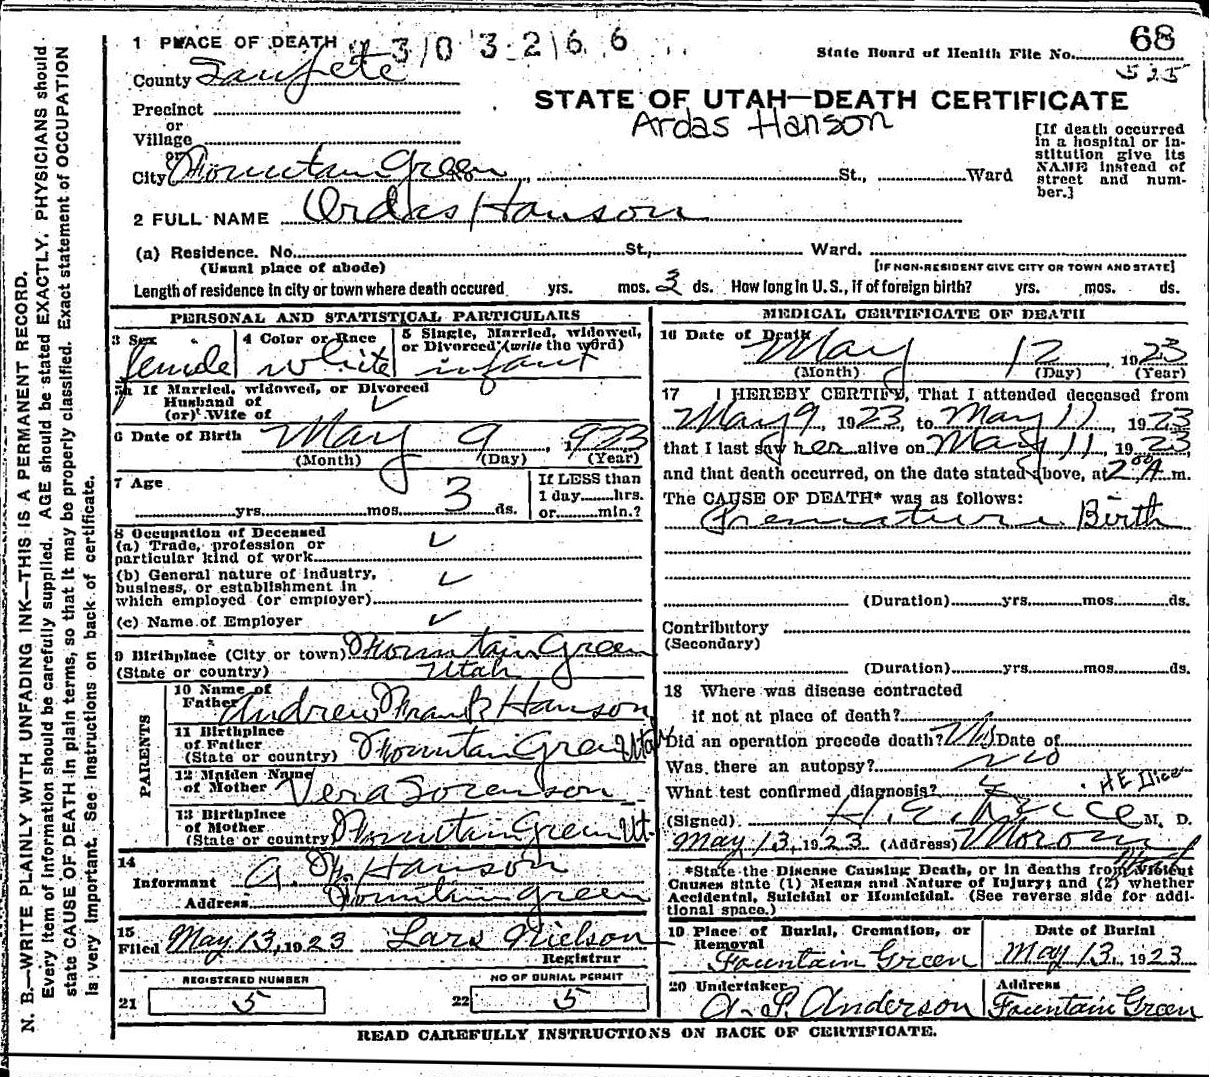 68
1 PLACE OF DEATH 3 0 3 2 6 6
State Board of Health File No.
525
County Sanpete
STATE OF UTAH—DEATH CERTIFICATE
Precinct
Ardas Hanson
or
Village
or
City Fountain Green St., Ward
[If death occurred in a hospital or institution give its NAME instead of street and number.]
2 FULL NAME Ordas Hanson
(a) Residence. No. St., Ward.
(Usual place of abode) [IF NON-RESIDENT GIVE CITY OR TOWN AND STATE]
Length of residence in city or town where death occured yrs. mos. 3 ds. How long in U.S., if of foreign birth? yrs. mos. ds.
PERSONAL AND STATISTICAL PARTICULARS
3 Sex female
4 Color or Race white
5 Single, Married, widowed, or Divorced (write the word) infant
5a If Married, widowed, or Divorced
Husband of
(or) Wife of
6 Date of Birth May 9, 1923
(Month) (Day) (Year)
7 Age yrs. mos. 3 ds.
If LESS than
1 day hrs.
or min.?
8 Occupation of Deceased
(a) Trade, profession or
particular kind of work
(b) General nature of industry,
business, or establishment in
which employed (or employer)
(c) Name of Employer
9 Birthplace (City or town) Fountain Green
(State or country) Utah
PARENTS
10 Name of
Father Andrew Frank Hanson
11 Birthplace
of Father
(State or country) Fountain Green Utah
12 Maiden Name
of Mother Vera Sorenson
13 Birthplace
of Mother
(State or country) Fountain Green Ut.
14
Informant A. F. Hanson
Address Fountain Green
15
Filed May 13, 1923 Lars Nielson
Registrar
REGISTERED NUMBER
21 5
NO OF BURIAL PERMIT
22 5
MEDICAL CERTIFICATE OF DEATH
16 Date of Death May 12, 1923
(Month) (Day) (Year)
17 I HEREBY CERTIFY, That I attended deceased from
May 9, 1923, to May 11, 1923
that I last saw her alive on May 11, 1923
and that death occurred, on the date stated above, at 2 00 A m.
The CAUSE OF DEATH* was as follows:
Premature Birth
(Duration) yrs. mos. ds.
Contributory
(Secondary)
(Duration) yrs. mos. ds.
18 Where was disease contracted
if not at place of death?
Did an operation precede death? No Date of
Was there an autopsy? No
What test confirmed diagnosis?
(Signed) M. D.
May 13, 1923 (Address) Moroni
*State the Disease Causing Death, or in deaths from Violent
Causes state (1) Means and Nature of Injury; and (2) whether
Accidental, Suicidal or Homicidal. (See reverse side for additional space.)
19 Place of Burial, Cremation, or
Removal
Fountain Green
Date of Burial
May 13, 1923
20 Undertaker
A. P. Anderson
Address
Fountain Green
READ CAREFULLY INSTRUCTIONS ON BACK OF CERTIFICATE.
N. B.—WRITE PLAINLY WITH UNFADING INK—THIS IS A PERMANENT RECORD.
Every item of information should be carefully supplied. AGE should be stated EXACTLY. PHYSICIANS should
state CAUSE OF DEATH in plain terms, so that it may be properly classified. Exact statement of OCCUPATION
is very important. See instructions on back of certificate.